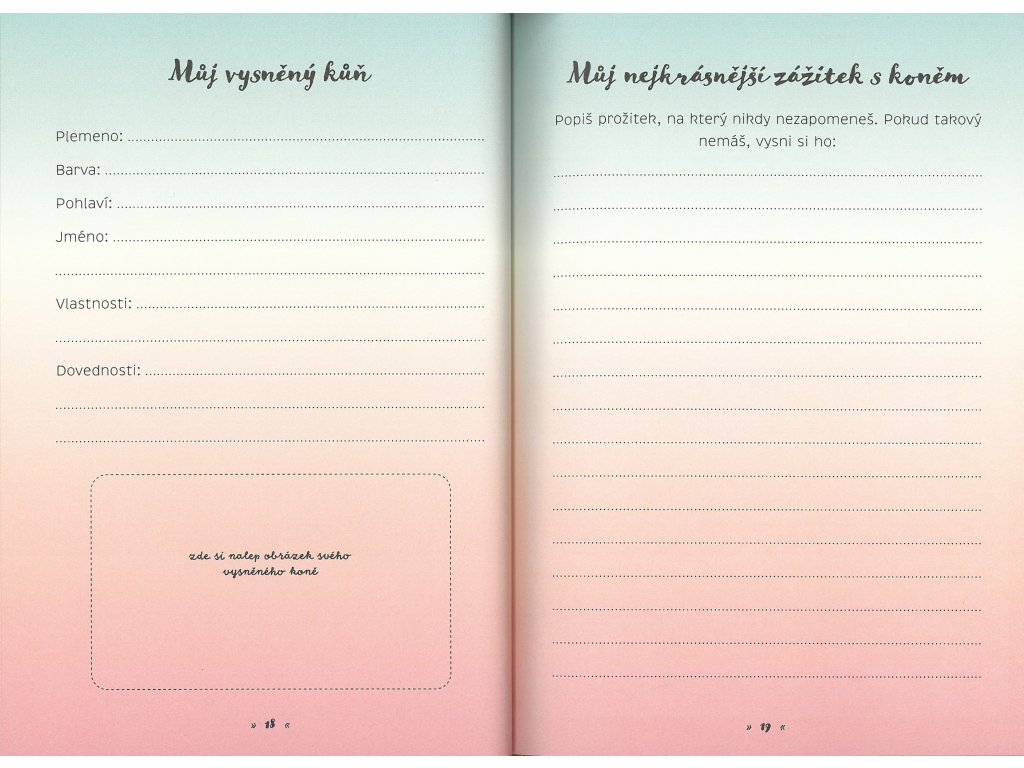 Můj vysněný kůň
Plemeno:
Barva:
Pohlaví:
Jméno:
Vlastnosti:
Dovednosti:
zde si nalep obrázek svého
vysněného koně
» 18 «
Můj nejkrásnější zážitek s koněm
Popiš prožitek, na který nikdy nezapomeneš. Pokud takový
nemáš, vysni si ho:
» 19 «